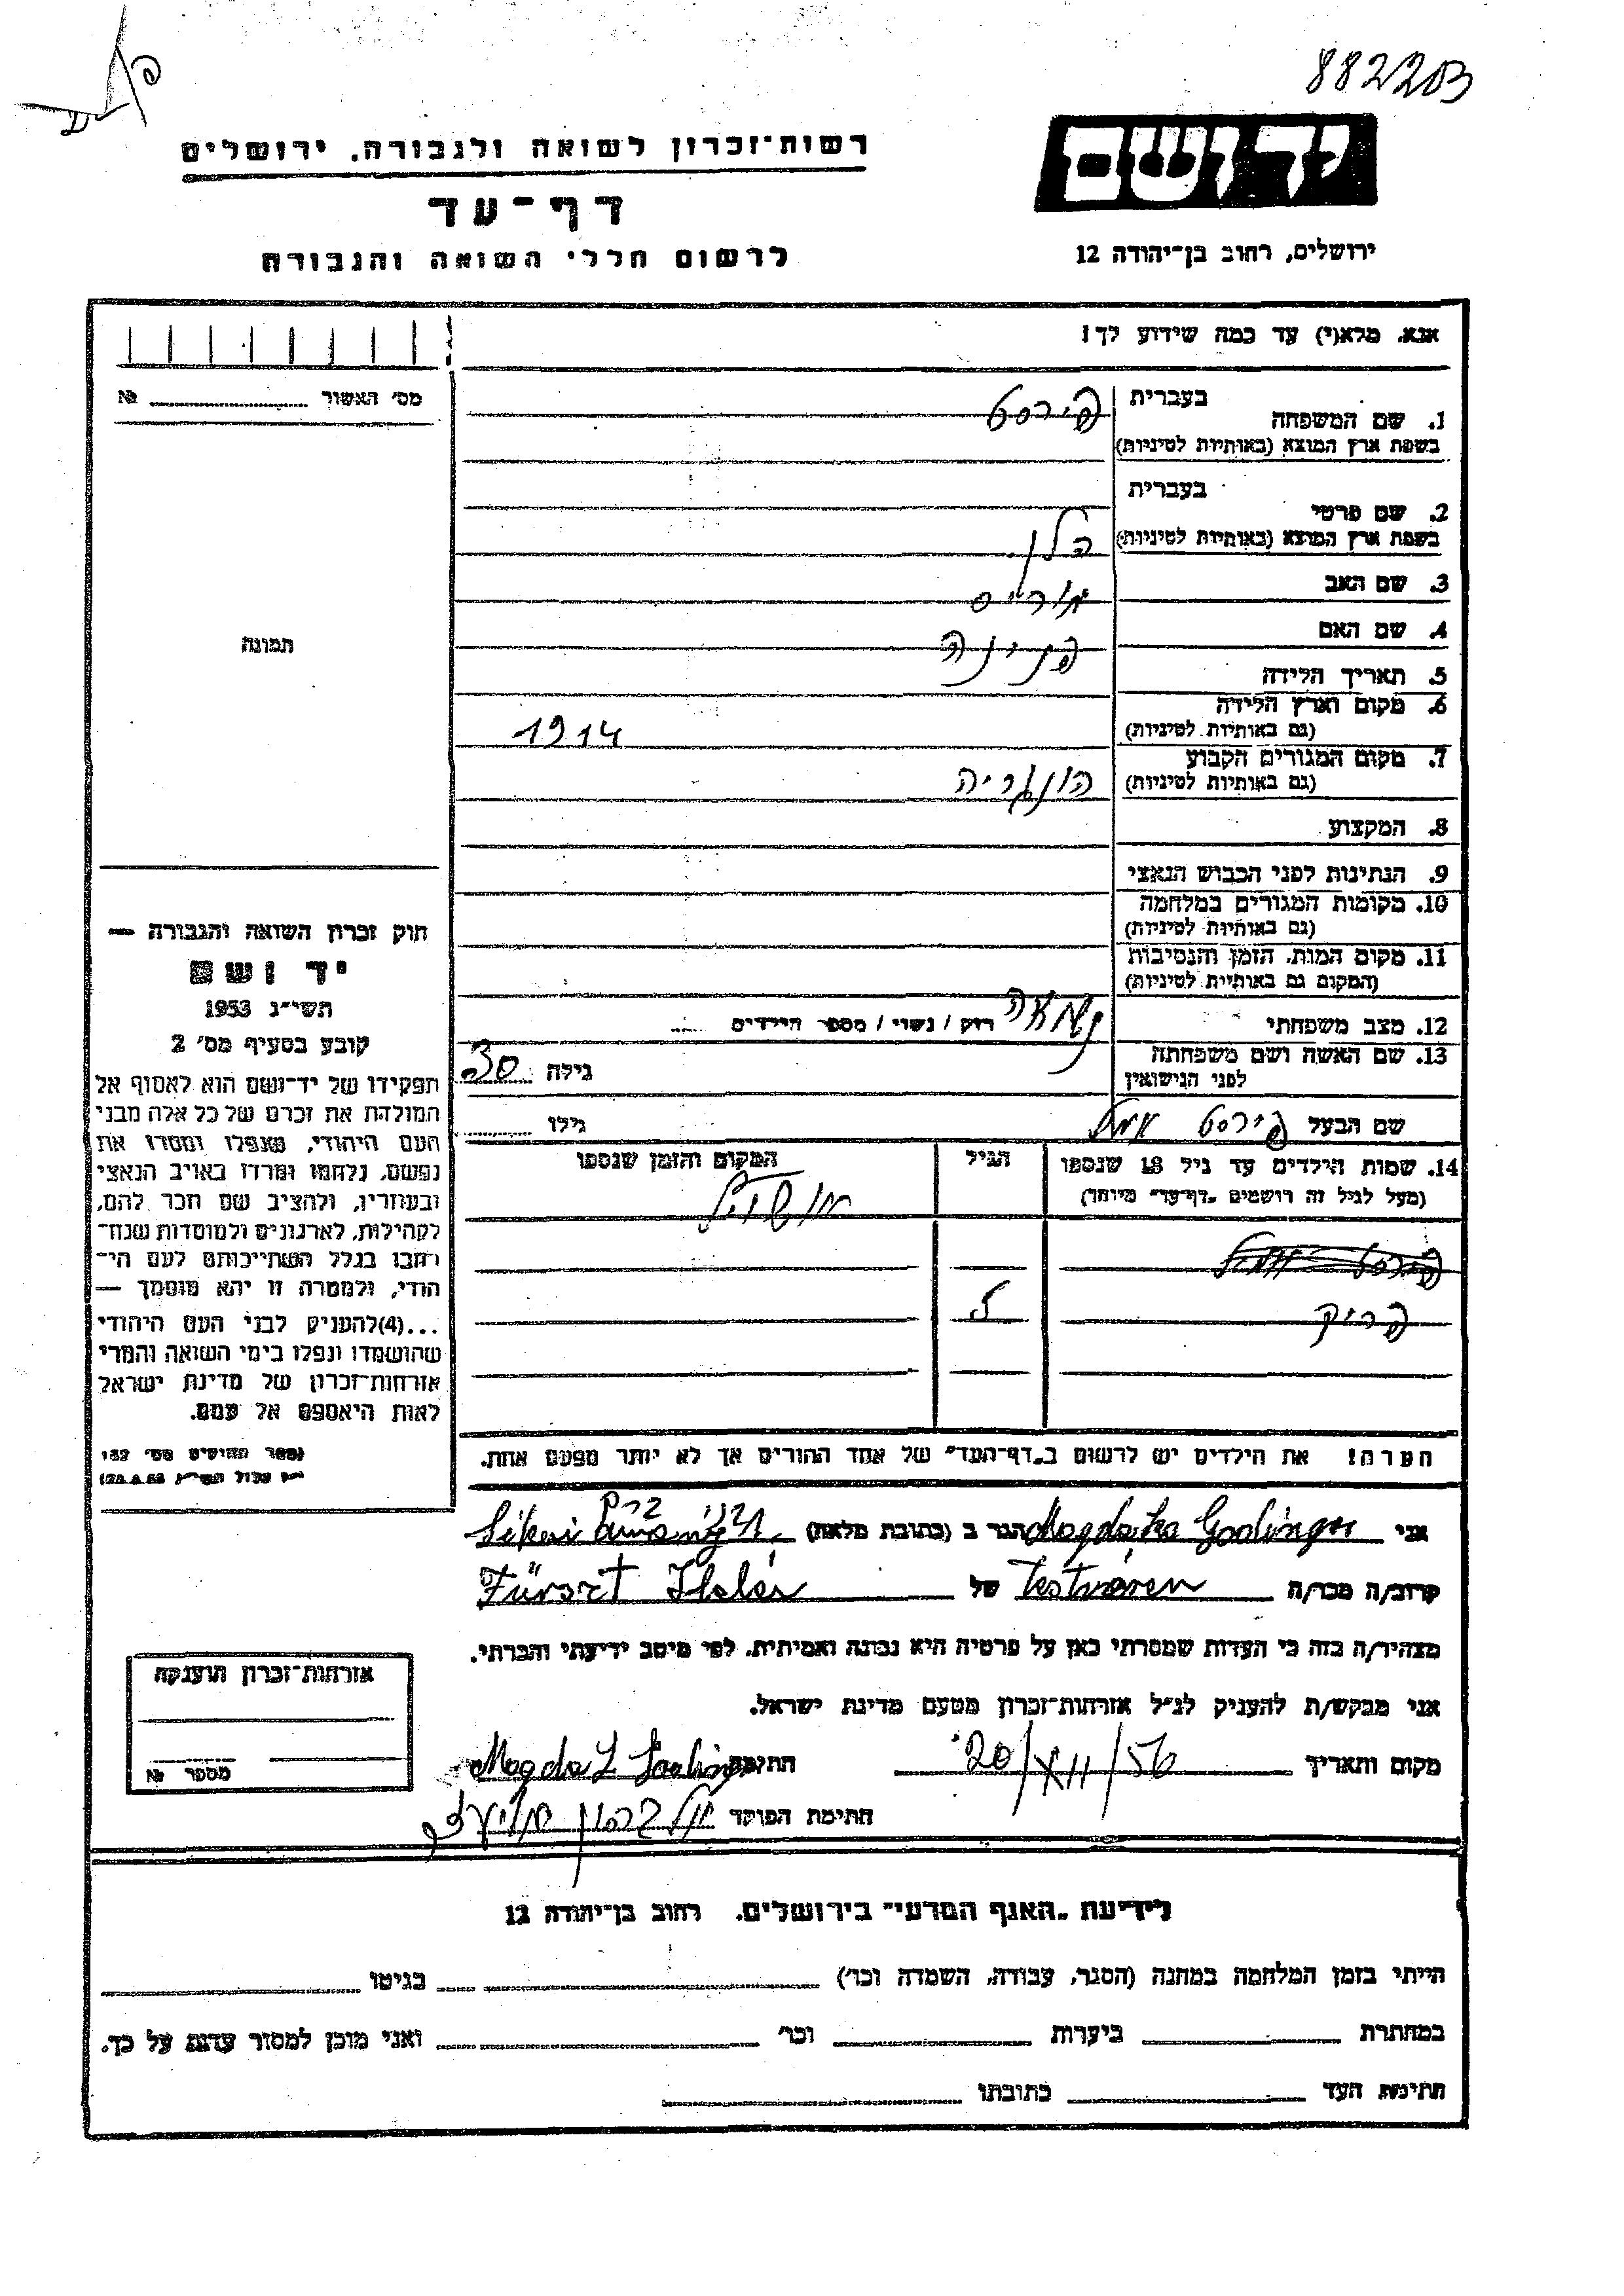 88220B
רשות־זכרון לשואה ולגבורה, ירושלים
יד ושם
דף־עד
לרשום חללי השואה והגבורה
ירושלים, רחוב בן־יהודה 12
אנא, מלא(י) עד כמה שידוע לך!
מס׳ האשור № 
בעברית
1. שם המשפחה פירסט
בשפת ארץ המוצא (באותיות לטיניות)
בעברית
2. שם פרטי
בשפת ארץ המוצא (באותיות לטיניות) הלן
3. שם האב מוריס
4. שם האם פנינה
תמונה
5. תאריך הלידה
6. מקום וארץ הלידה
(גם באותיות לטיניות) 1914
7. מקום המגורים הקבוע
(גם באותיות לטיניות) הונגריה
8. המקצוע
9. הנתינות לפני הכבוש הנאצי
10. מקומות המגורים במלחמה
(גם באותיות לטיניות)
11. מקום המות, הזמן והנסיבות
(המקום גם באותיות לטיניות)
12. מצב משפחתי רוק / נשוי / מספר הילדים
13. שם האשה ושם משפחתה
לפני הנישואין גילה 30
שם הבעל פירסט גילו
14. שמות הילדים עד גיל 18 שנספו הגיל המקום והזמן שנספו
(מעל לגיל זה רושמים „דף־עד״ מיוחד)
פריק
הערה! את הילדים יש לרשום ב„דף־העד״ של אחד ההורים אך לא יותר מפעם אחת.
חוק זכרון השואה והגבורה —
יד ושם
תשי״ג 1953
קובע בסעיף מס׳ 2
תפקידו של יד־ושם הוא לאסוף אל
המולדת את זכרם של כל אלה מבני
העם היהודי, שנפלו ומסרו את
נפשם, נלחמו ומרדו באויב הנאצי
ובעוזריו, ולהציב שם וזכר להם,
לקהילות, לארגונים ולמוסדות שנח־
רבו בגלל השתייכותם לעם הי־
הודי, ולמטרה זו יהא מוסמך —
...(4)להעניק לבני העם היהודי
שהושמדו ונפלו בימי השואה והמרי
אזרחות־זכרון של מדינת ישראל
לאות היאספם אל עמם.
(ספר החוקים מס׳ 132
אני Magda הגר ב (כתובת מלאה)
קרוב/ה מכר/ה Testvérem של Fürszt Helén
מצהיר/ה בזה כי העדות שמסרתי כאן על פרטיה היא נכונה ואמיתית, לפי מיטב ידיעתי והכרתי.
אני מבקש/ת להעניק לנ״ל אזרחות־זכרון מטעם מדינת ישראל.
מקום ותאריך 20/XII/56 חתימה Magda
חתימת הפוקד
אזרחות־זכרון הוענקה
מספר №
לידיעת „האגף המדעי״ בירושלים, רחוב בן־יהודה 12
הייתי בזמן המלחמה במחנה (הסגר, עבודה, השמדה וכו׳) בגיטו
במחתרת ביערות וכו׳ ואני מוכן למסור עדות על כך.
חתימת העד כתובתו